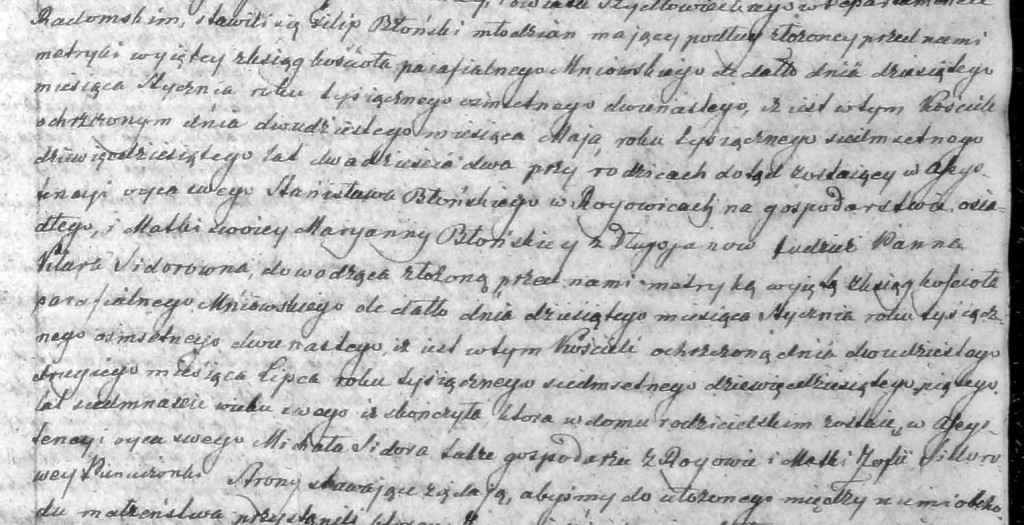 Powiatu Szydłowieckiego w Departamencie
Radomskim, stawili się Filip Błoński młodzian maiący podług złożoney przed nami
metryki wyiętey z ksiąg kościoła parafialnego Mniowskiego de datto dnia dziesiątego
miesiąca Stycznia roku tysiącznego osmsetnego dwunastego, iż iest w tym Kościele
ochrzczonym dnia dwudziestego miesiąca Maja roku tysiącznego siedmsetnego
dziewięćdziesiątego lat dwadzieścia dwa przy rodzicach dotąd zostaiący w Asys-
tencyi oyca swego Stanisława Błońskiego w Royowicach na gospodarstwie osia-
dłego, i Matki swoiey Maryanny Błońskiey z Długojanow tudzież Panna
Klara Sidorowna, dowodząca złożoną przed nami metryką wyiętą z ksiąg kościoła
parafialnego Mniowskiego de datto dnia dziesiątego miesiąca Stycznia roku tysiącz-
nego osmsetnego dwunastego, iż iest w tym Kościele ochrzczoną dnia dwudziestego
drugiego miesiąca Lipca roku tysiącznego siedmsetnego dziewięćdziesiątego piątego
lat siedmnaście wieku swego iż skończyła która w domu rodzicielskim zostaie, w Asys-
tencyi oyca swego Michała Sidora także gospodarza z Royowic i Matki Zofii Sidoro
wey Strony stawaiące żądaią, abyśmy do ułożonego między niemi obcho
du małżeństwa przystąpili